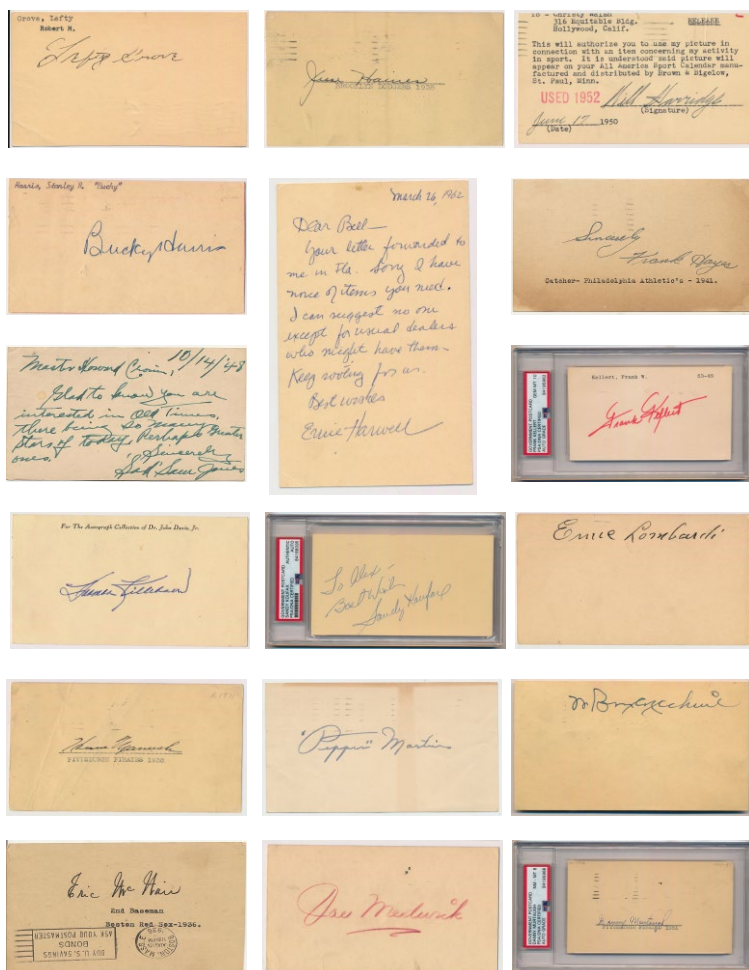 Grove, Lefty
Robert M.
Lefty Grove
Jesse Haines
BROOKLYN DODGERS 1938
To - Christy Walsh
316 Equitable Bldg.
Hollywood, Calif.
RELEASE
This will authorize you to use my picture in
connection with an item concerning my activity
in sport. It is understood said picture will
appear on your All America Sport Calendar manu-
factured and distributed by Brown & Bigelow,
St. Paul, Minn.
USED 1952
Will Harridge
(Signature)
June 17 1950
(Date)
Harris, Stanley R. "Bucky"
Bucky Harris
March 26, 1962
Dear Bill—
Your letter forwarded to
me in Fla. Sorry I have
none of items you need.
I can suggest no one
except for usual dealers
who might have them—
Keep rooting for us.
Best wishes
Ernie Harwell
Sincerely
Frank Hayes
Catcher- Philadelphia Athletic's - 1941.
10/14/'48
Master Howard
Glad to know you are
interested in Old Timers,
there being so many
Stars of today, Perhaps Greater
ones.
Sincerely
"Sad" Sam Jones
GOVERNMENT POSTCARD
FRANK KELLERT
PSA/DNA CERTIFIED
AUTO GRADE
GEM MT 10
Kellert, Frank W.
53-56
Frank Kellert
For The Autograph Collection of Dr. John Davis, Jr.
Harmon Killebrew
GOVERNMENT POSTCARD
SANDY KOUFAX
PSA/DNA CERTIFIED
AUTHENTIC
AUTO
To Alex-
Best Wishes
Sandy Koufax
Ernie Lombardi
Heinie Manush
PITTSBURGH PIRATES 1938
"Pepper" Martin
Eric McNair
2nd Baseman
Boston Red Sox-1936.
BUY U.S. SAVINGS
BONDS
ASK YOUR POSTMASTER
BOSTON, MASS.
Joe Medwick
GOVERNMENT POSTCARD
PSA/DNA CERTIFIED
AUTO GRADE